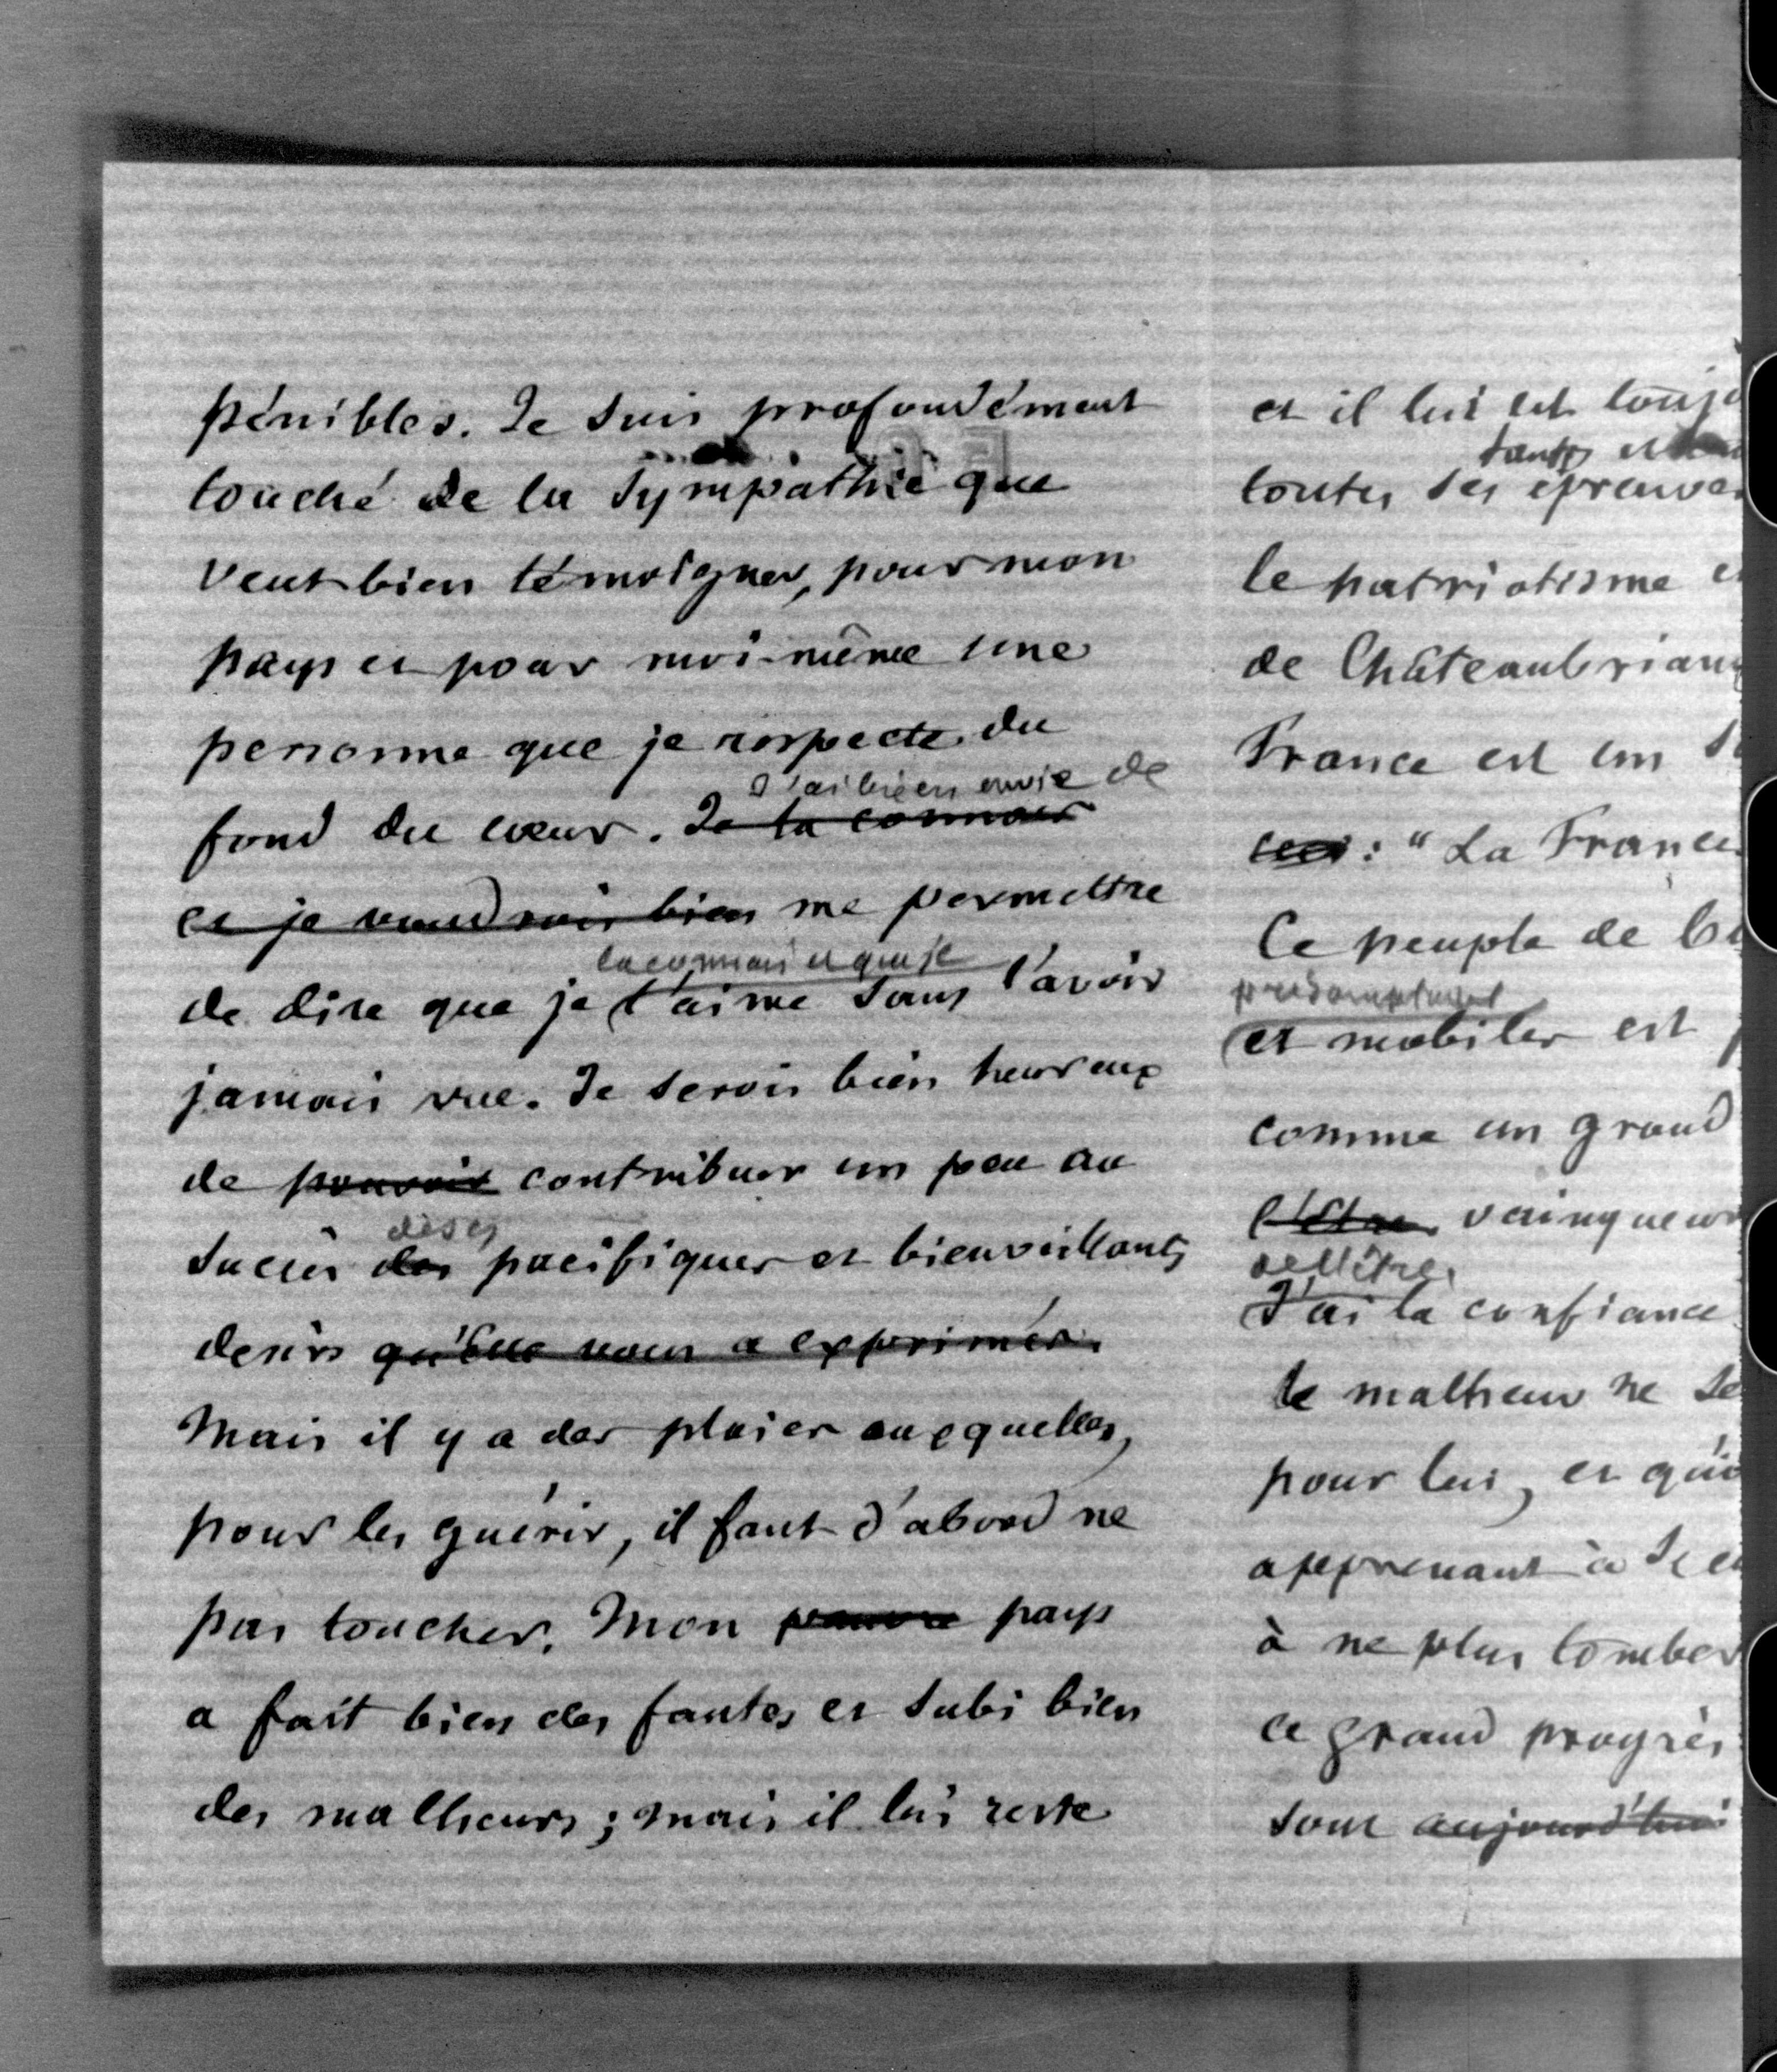 pénibles. Je suis profondément
touché de la sympathie que
veut bien témoigner, pour mon
pays et pour moi-même une
personne que je respecte du
J'ai bien envie de
fond du cœur. Je la connais
et je voudrais bien me permettre
la connais et que je
de dire que je l'aime sans l'avoir
jamais vue. Je serois bien heureux
de pouvoir contribuer un peu au
de ses
succès des pacifiques et bienveillants
desirs qu'elle nous a exprimés.
Mais il y a des plaies auxquelles,
pour les guérir, il faut d'abord ne
pas toucher. Mon pauvre pays
a fait bien des fautes et subi bien
des malheurs ; mais il lui reste
et il lui est touj
toutes ses épreuves
le patriotisme
de Châteaubrian
France est un
: "La France
Ce peuple de
présomptueux
et mobiles est
comme un grand
l'être vainqueur
de l'être.
J'ai la confiance
le malheur ne se
pour lui, et qu'i
apprenant à se
à ne plus tomber
ce grand progrès
sont aujourd'hui